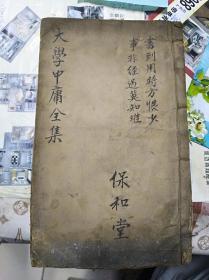 書到用時方恨少
事非經过莫知难
保和堂
大學中庸全集